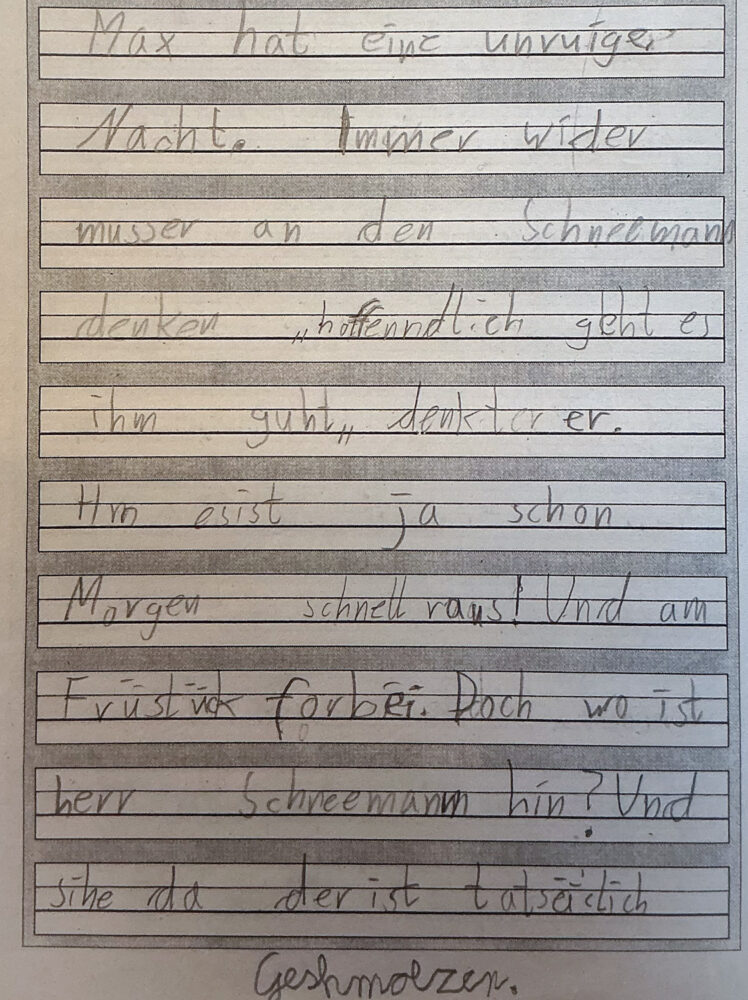 Max hat eine unruiger
Nacht. Immer wider
musser an den Schneemann
denken „hoffenndlich geht es
ihm guht„ denkter er.
Hm esist ja schon
Morgen schnell raus! Und am
Früstück forbei. Doch wo ist
herr Schneemann hin? Und
sihe da der ist tatsäichlich
Geshmolzen.